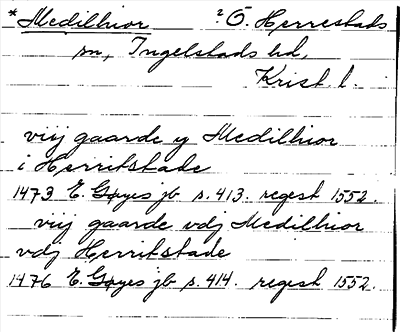 * Medilhior ? Ö. Herrestads
sn, Ingelstads hd,
Krist. l.
viij gaarde y Medilhior
i Herritstade
1473 E. Gøyes jb s. 413. regest 1552.
viij gaarde vdj Medilhior
vdj Herritstade
1476 E. Gøyes jb s. 414. regest 1552.